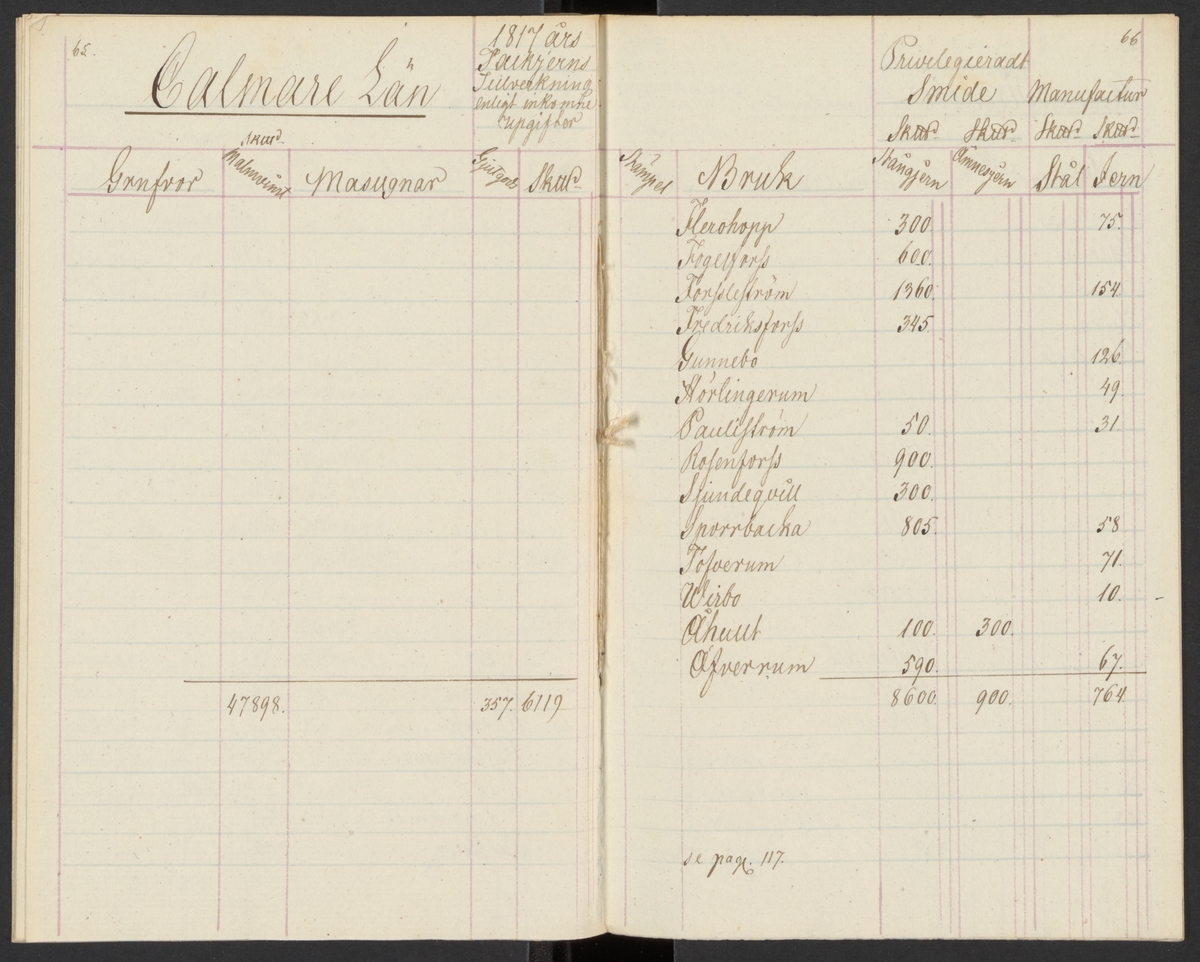 65.
Calmare Län
1817 års
Tackjerns
Tillverkning
enligt inkomne
upgifter
Skttd
Grufvor Malmvinst Masugnar Gjutgods Skttd
47898. 357. 6119
66
Privilegieradt
Smide Manufactur
Skttd Skttd Skttd Skttd
Stämpel Bruk Stångjern Ämnesjern Stål Jern
Flerohopp 300. 75.
Fogelforss 600.
Forssleström 1360. 154
Fredriksforss 345.
Gunnebo 126.
Hörlingerum 49.
Pauliström 50. 31.
Rosenforss 900.
Sjundeqvill 300.
Sporrbacka 805. 58
Tofverum 71.
Wirbo 10.
Åhult 100. 300.
Öfverrum 590. 67.
8600. 900. 764.
se pag. 117.